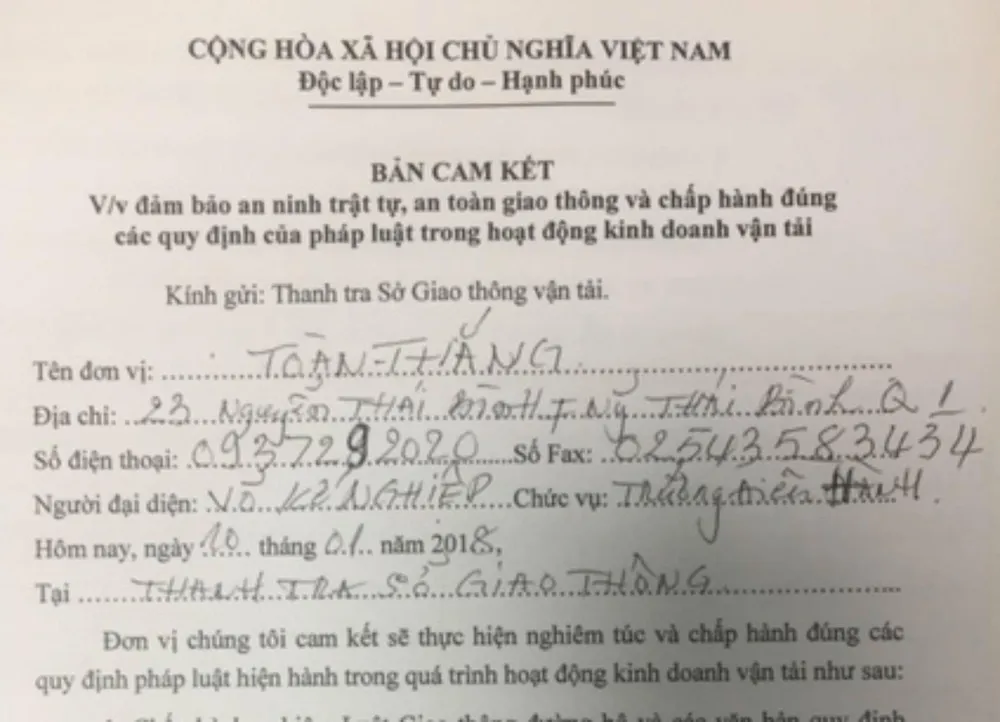 CỘNG HÒA XÃ HỘI CHỦ NGHĨA VIỆT NAM
Độc lập – Tự do – Hạnh phúc
BẢN CAM KẾT
V/v đảm bảo an ninh trật tự, an toàn giao thông và chấp hành đúng
các quy định của pháp luật trong hoạt động kinh doanh vận tải
Kính gửi: Thanh tra Sở Giao thông vận tải.
Tên đơn vị: TOÀN THẮNG
Địa chỉ: 23 Nguyễn THÁI BÌNH Thái Bình Q 1
Số điện thoại: 0937292020 Số Fax: 02543583434
Người đại diện: VÕ KẾ NGHIỆP Chức vụ: Trưởng
Hôm nay, ngày 10 tháng 01 năm 2018,
Tại THANH TRA SỞ GIAO THÔNG
Đơn vị chúng tôi cam kết sẽ thực hiện nghiêm túc và chấp hành đúng các
quy định pháp luật hiện hành trong quá trình hoạt động kinh doanh vận tải như sau: